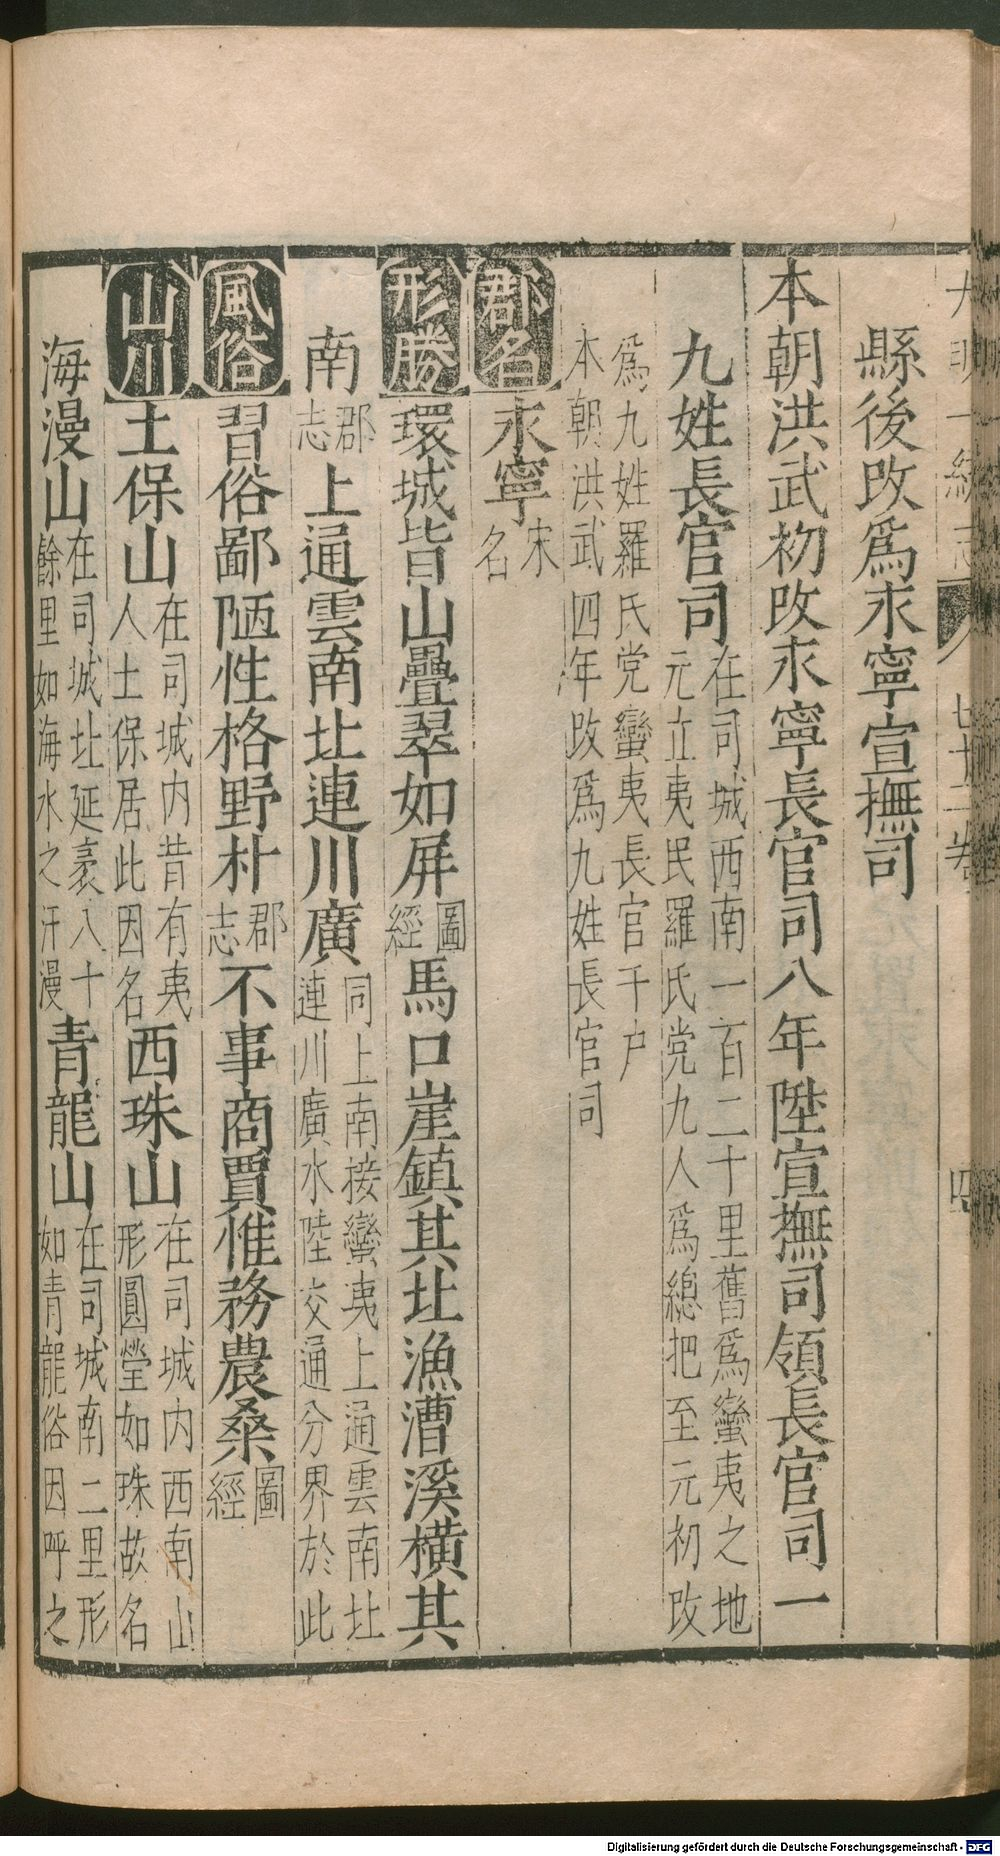 大明一統志 七十二卷 四
縣後改爲永寧宣撫司
本朝洪武初改永寧長官司八年陞宣撫司領長官司一
九姓長官司
在司城西南一百二十里舊爲蠻夷之地
元立夷民羅氏党九人爲總把至元初改
爲九姓羅氏党蠻夷長官千户
本朝洪武四年改爲九姓長官司
郡名 永寧
宋
名
形勝 環城皆山疊翠如屏
圖
經
馬口崖鎮其北漁漕溪橫其
南
郡
志
上通雲南北連川廣
同上南接蠻夷上通雲南北
連川廣水陸交通分界於此
風俗 習俗鄙陋性格野朴
郡
志
不事商賈惟務農桑
圖
經
山川 土保山
在司城内昔有夷
人土保居此因名
西珠山
在司城内西南山
形圓瑩如珠故名
海漫山
在司城北延袤八十
餘里如海水之汗漫
青龍山
在司城南二里形
如青龍俗因呼之
Digitalisierung gefördert durch die Deutsche Forschungsgemeinschaft - DFG